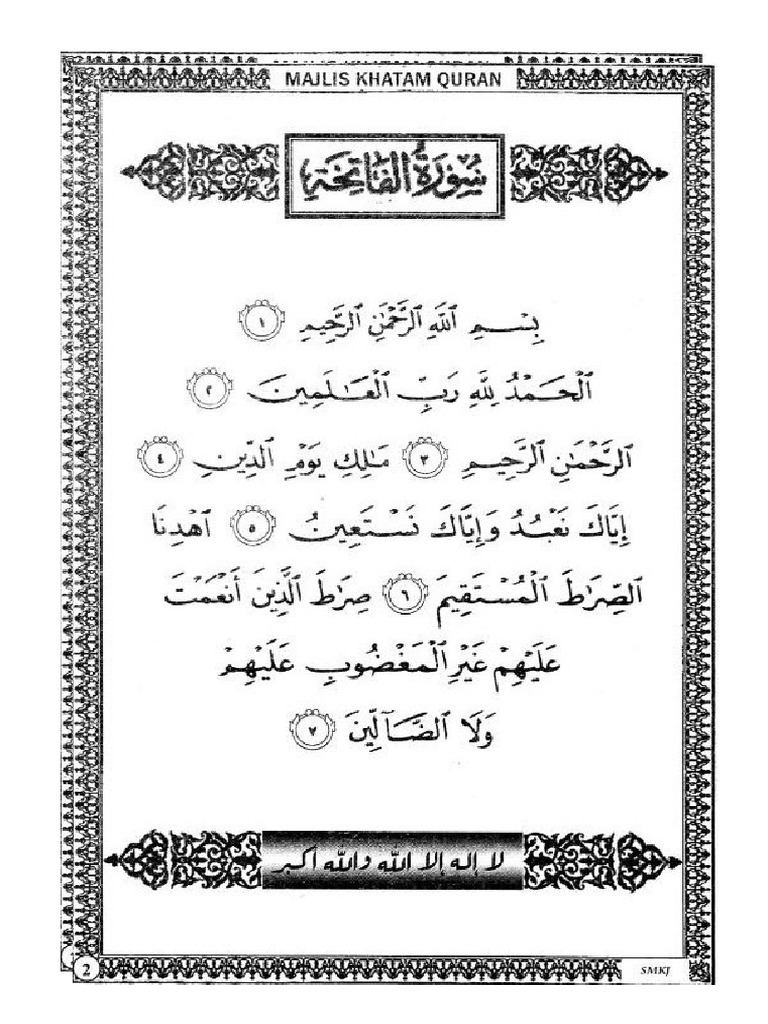 MAJLIS KHATAM QURAN
سُورَةُ الفَاتِحَةِ
بِسْمِ ٱللَّهِ ٱلرَّحْمَٰنِ ٱلرَّحِيمِ ١
ٱلْحَمْدُ لِلَّهِ رَبِّ ٱلْعَٰلَمِينَ ٢
ٱلرَّحْمَٰنِ ٱلرَّحِيمِ ٣ مَٰلِكِ يَوْمِ ٱلدِّينِ ٤
إِيَّاكَ نَعْبُدُ وَإِيَّاكَ نَسْتَعِينُ ٥ ٱهْدِنَا
ٱلصِّرَٰطَ ٱلْمُسْتَقِيمَ ٦ صِرَٰطَ ٱلَّذِينَ أَنْعَمْتَ
عَلَيْهِمْ غَيْرِ ٱلْمَغْضُوبِ عَلَيْهِمْ
وَلَا ٱلضَّآلِّينَ ٧
لا إله إلا الله والله اكبر
2
SMKJ